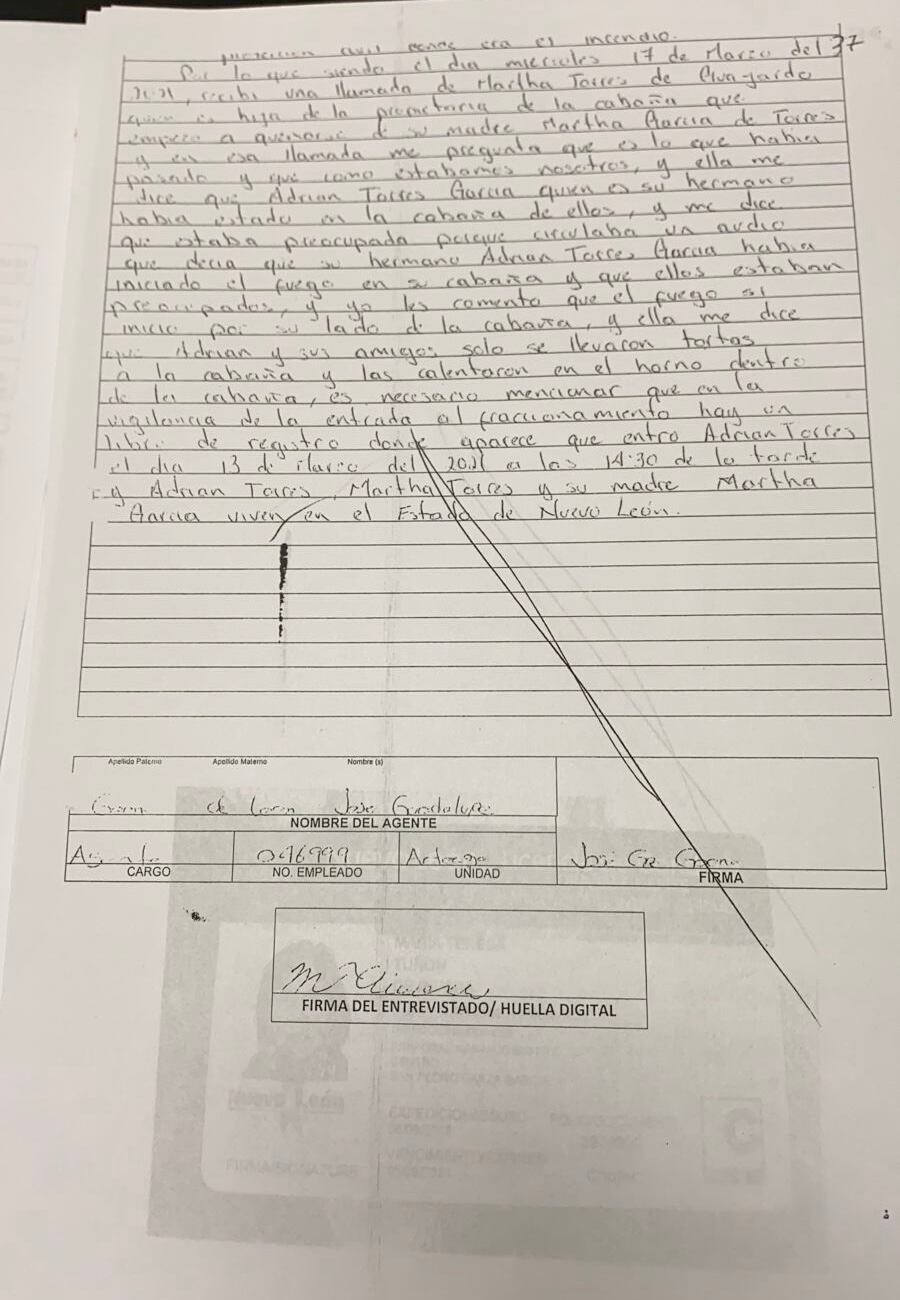 aquel donde era el incendio.
37
Por lo que siendo el dia miercoles 17 de Marzo del
2021, recibi una llamada de Martha Torres de
quien es hija de la propietaria de la cabaña que
empezo a quemarse de su madre Martha Garcia de Torres
y en esa llamada me pregunta que es lo que habia
pasado y que como estabamos nosotros, y ella me
dice que Adrian Torres Garcia quien es su hermano
habia estado en la cabaña de ellos, y me dice
que estaba preocupada porque circulaba un audio
que decia que su hermano Adrian Torres Garcia habia
iniciado el fuego en su cabaña y que ellos estaban
preocupados, y yo les comento que el fuego si
inicio por su lado de la cabaña, y ella me dice
que Adrian y sus amigos solo se llevaron tortas
a la cabaña y las calentaron en el horno dentro
de la cabaña, es necesario mencionar que en la
vigilancia de la entrada al fraccionamiento hay un
libro de registro donde aparece que entro Adrian Torres
el dia 13 de Marzo del 2021 a las 14:30 de la tarde
y Adrian Torres, Martha Torres y su madre Martha
Garcia viven en el Estado de Nuevo León.
Apellido Paterno Apellido Materno Nombre (s)
de Jose Guadalupe
NOMBRE DEL AGENTE
046999
CARGO NO. EMPLEADO UNIDAD FIRMA
FIRMA DEL ENTREVISTADO/ HUELLA DIGITAL
Nuevo León
FIRMA/SIGNATURE
C